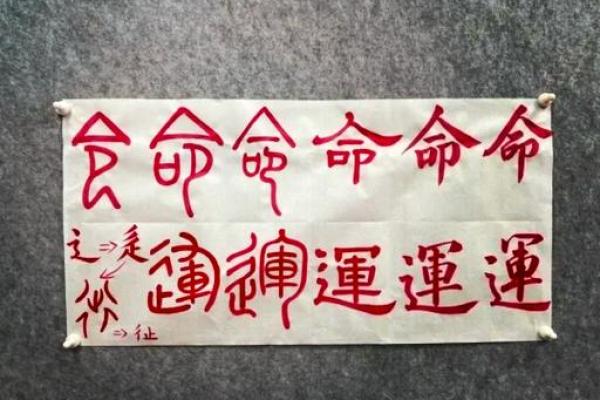 命命命命命命
辶⇒辵 運運運運運
⇒彳止